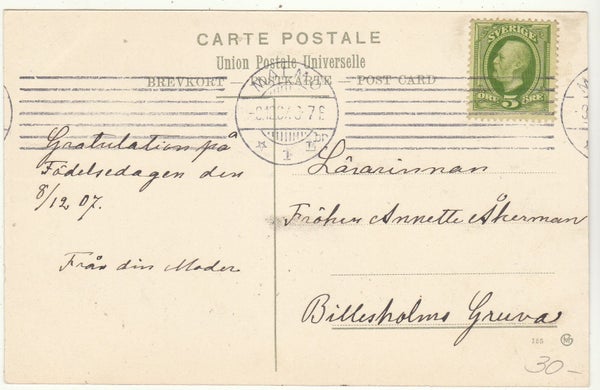 CARTE POSTALE
Union Postale Universelle
BREVKORT — POSTKARTE — POST CARD
SVERIGE
5
ÖRE ÖRE
MALMÖ
1
Gratulation på
Födelsedagen den
8/12 07.
Från din Moder
Lärarinnan
Fröken Annette Åkerman
Billesholms Gruva
125
30-